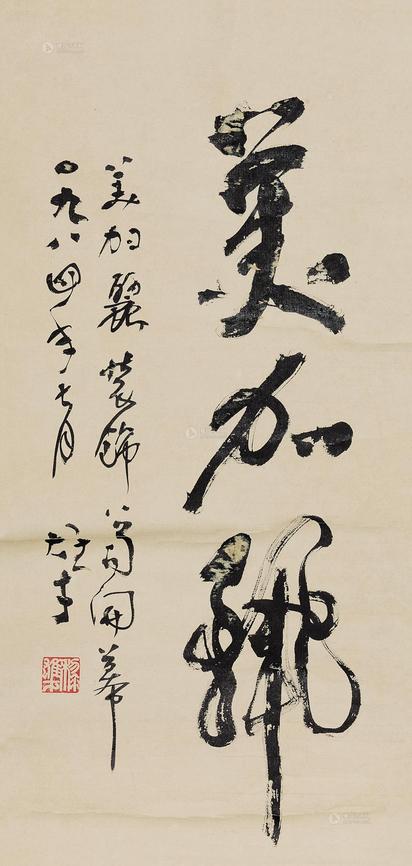 美加麗
美加麗裝飾公司開幕
一九八四年七月
雄才